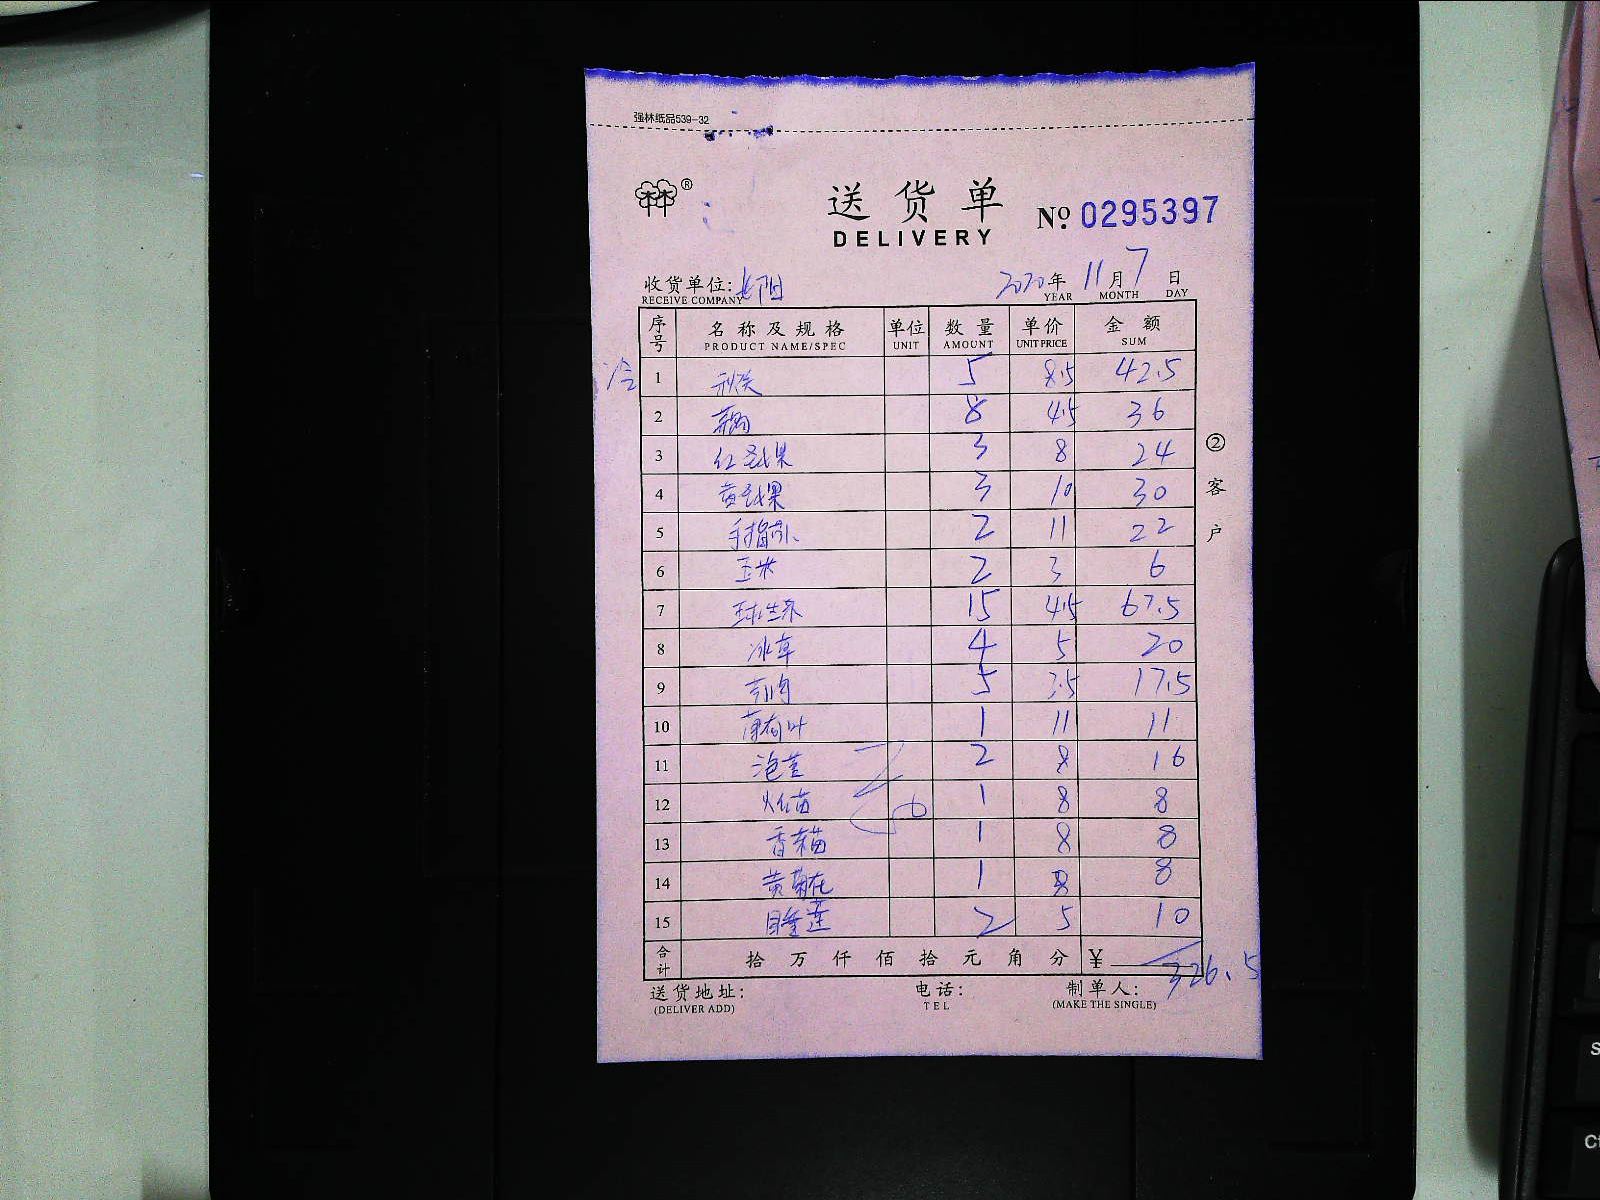 强林纸品539-32
林®
送货单 № 0295397
DELIVERY
收货单位: 长阳 2020年 11月 7日
RECEIVE COMPANY YEAR MONTH DAY
序号 名称及规格 单位 数量 单价 金额
PRODUCT NAME/SPEC UNIT AMOUNT UNIT PRICE SUM
冷 1 秋葵 5 8.5 42.5
2 8 4.5 36
3 红圣女果 3 8 24
4 黄圣女果 3 10 30
5 手指 2 11 22
6 玉米 2 3 6
7 球生菜 15 4.5 67.5
8 冰草 4 5 20
9 5 3.5 17.5
10 薄荷叶 1 11 11
11 2 8 16
12 苗 1 8 8
13 香菜苗 1 8 8
14 黄菊花 1 8 8
15 睡莲 2 5 10
合计 拾万仟佰拾元角分 ¥ 326.5
送货地址: 电话: 制单人:
(DELIVER ADD) TEL (MAKE THE SINGLE)
②客户